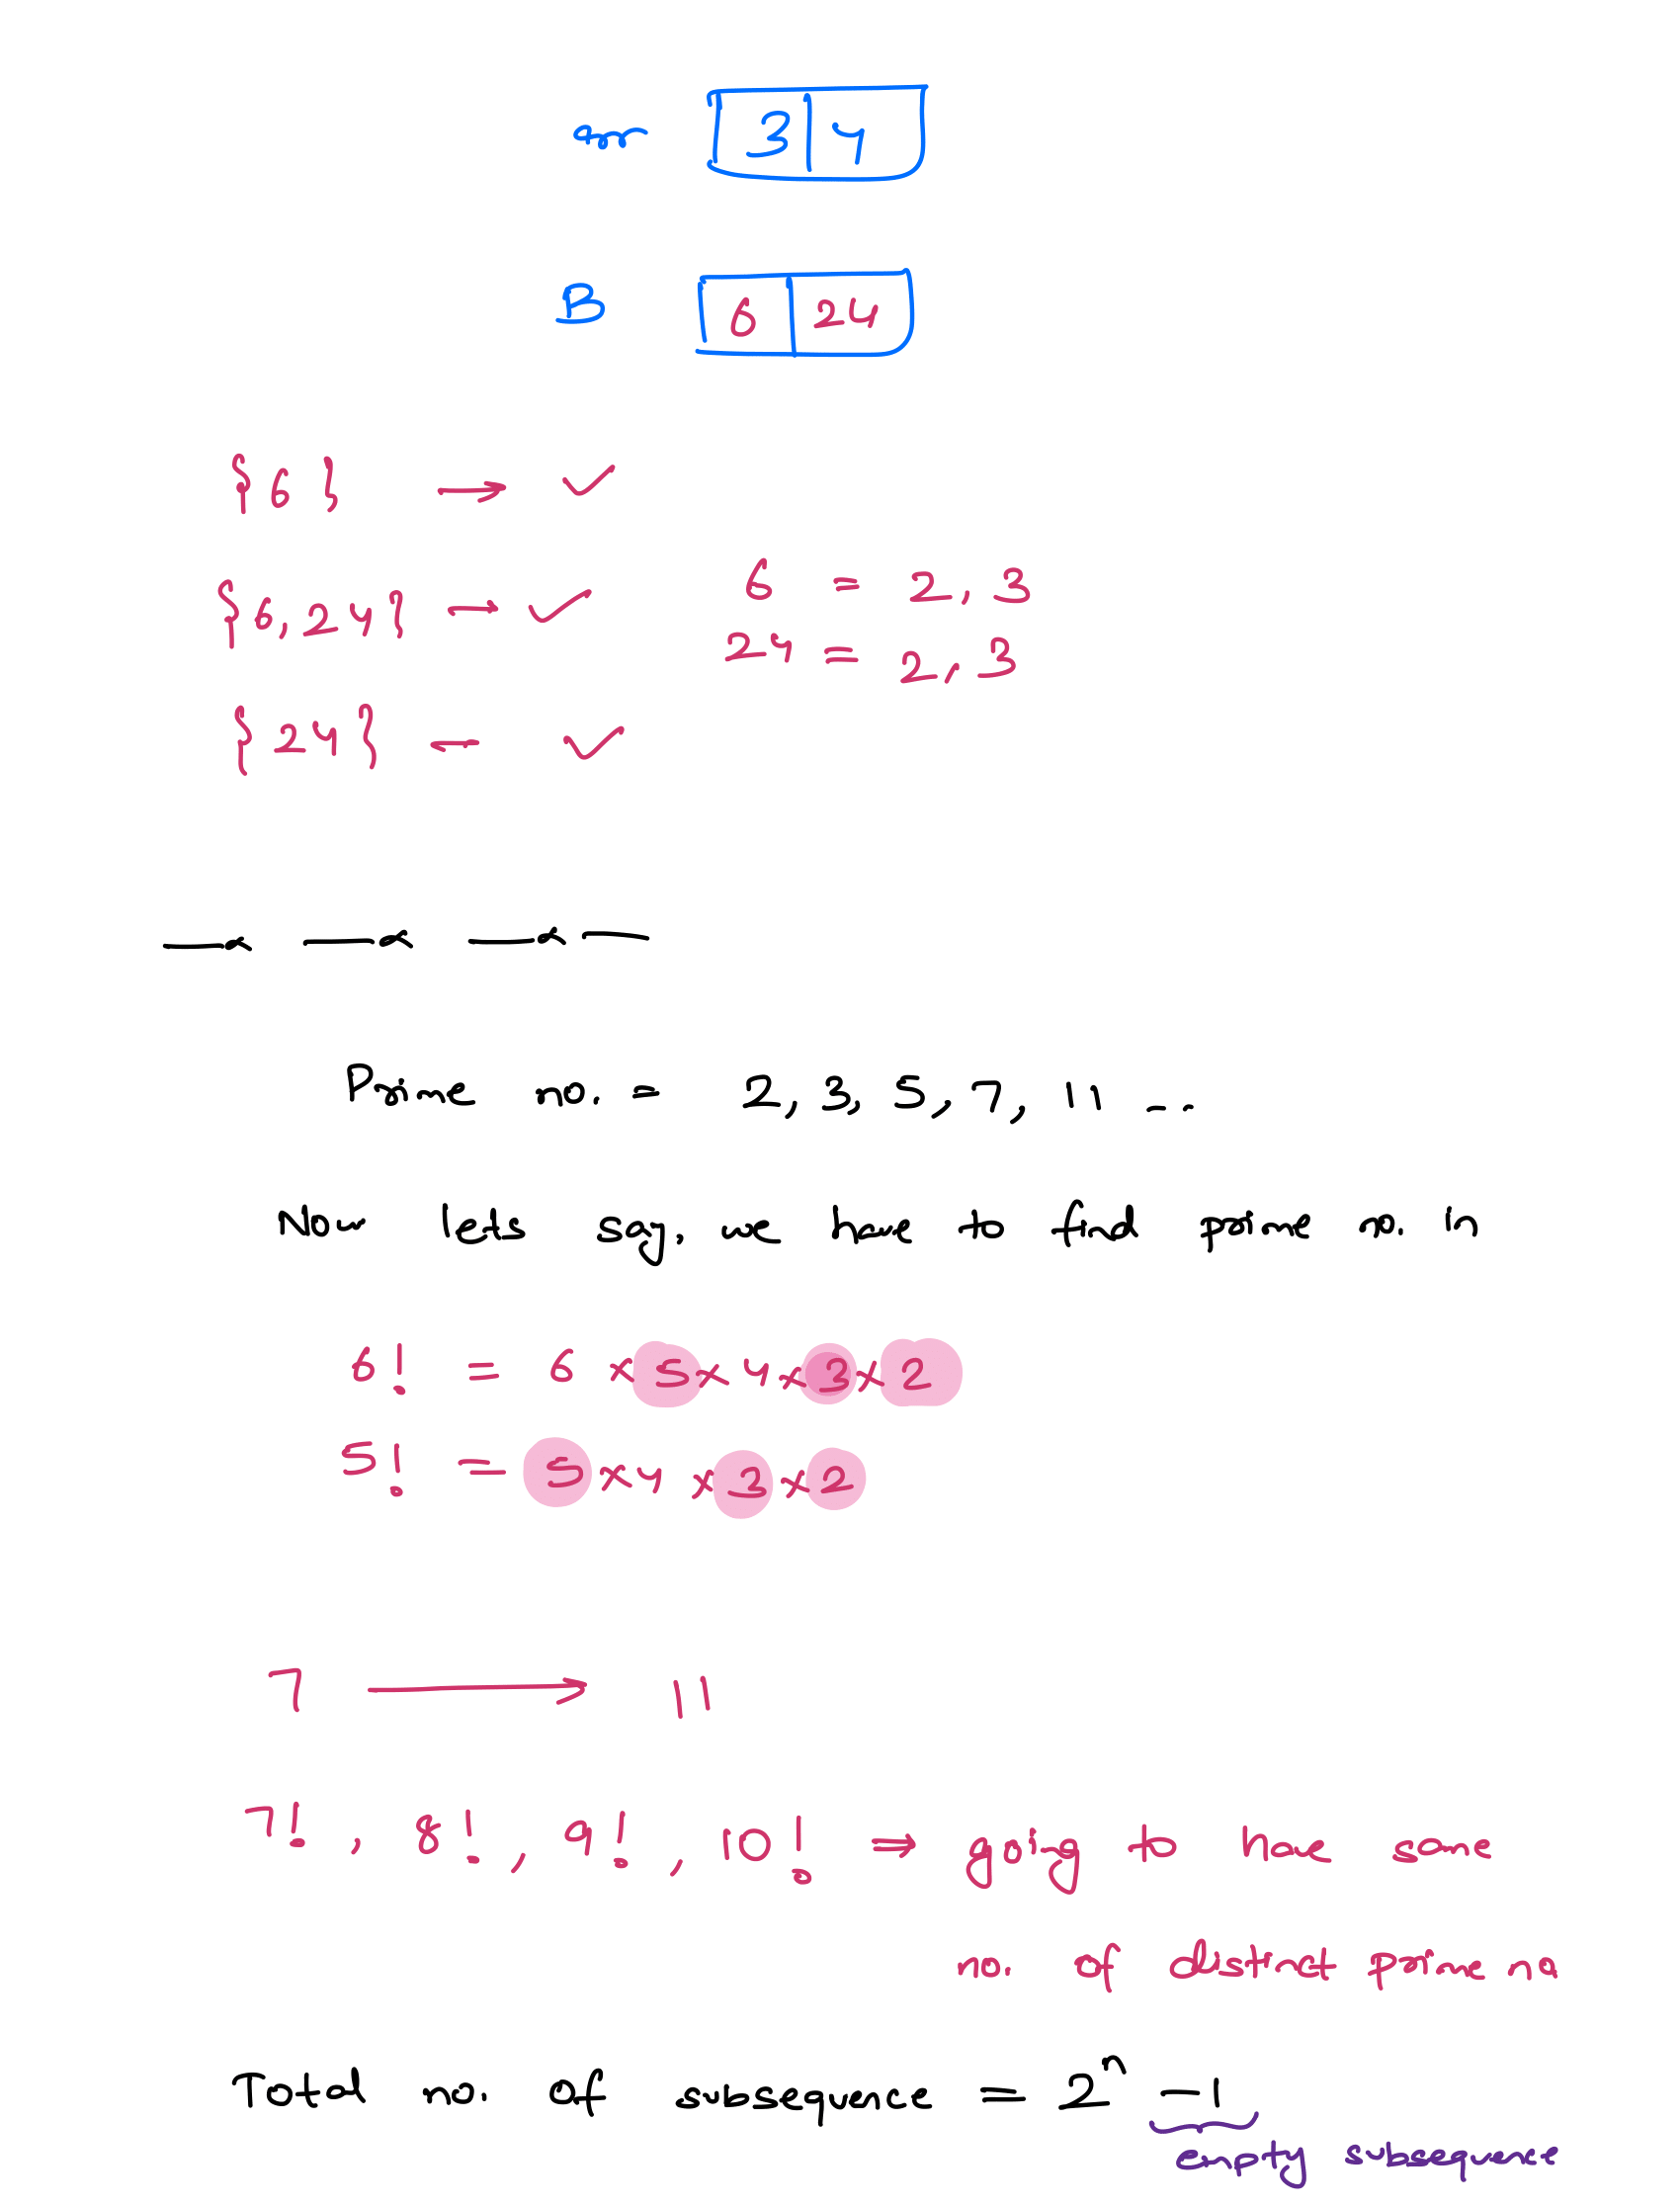 arr 3 4
B 6 24
{6} → ✓
{6,24} → ✓
6 = 2, 3
24 = 2, 3
{24} – ✓
Prime no. = 2, 3, 5, 7, 11 ...
Now lets say, we have to find prime no. in
6! = 6 x 5 x 4 x 3 x 2
5! = 5 x 4 x 3 x 2
7 → 11
7! , 8! , 9! , 10! ⇒ going to have same
no. of distinct prime no
Total no. of subsequence = 2ⁿ - 1
empty subsequence